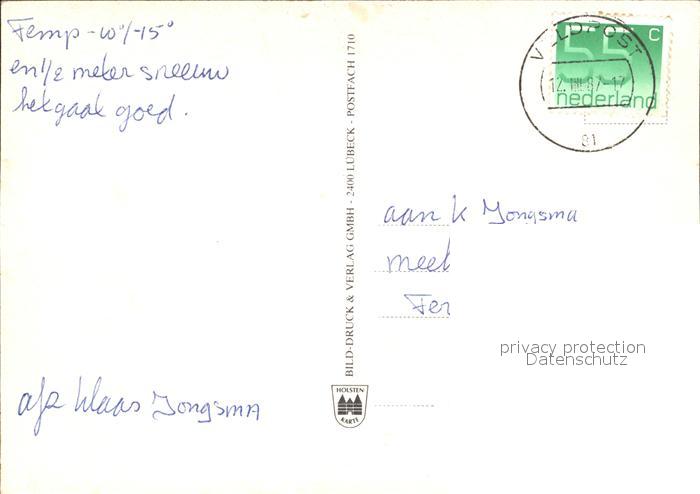 Temp -10°/-15°
en 1/2 meter sneeuw
het gaat goed.
afz Klaas Jongsma
BILD-DRUCK & VERLAG GMBH - 2400 LÜBECK - POSTFACH 1710
HOLSTEN
KARTE
VELDPOST
12.III.87-17
81
55 c
nederland
aan K Jongsma
meel
Fer
privacy protection
Datenschutz